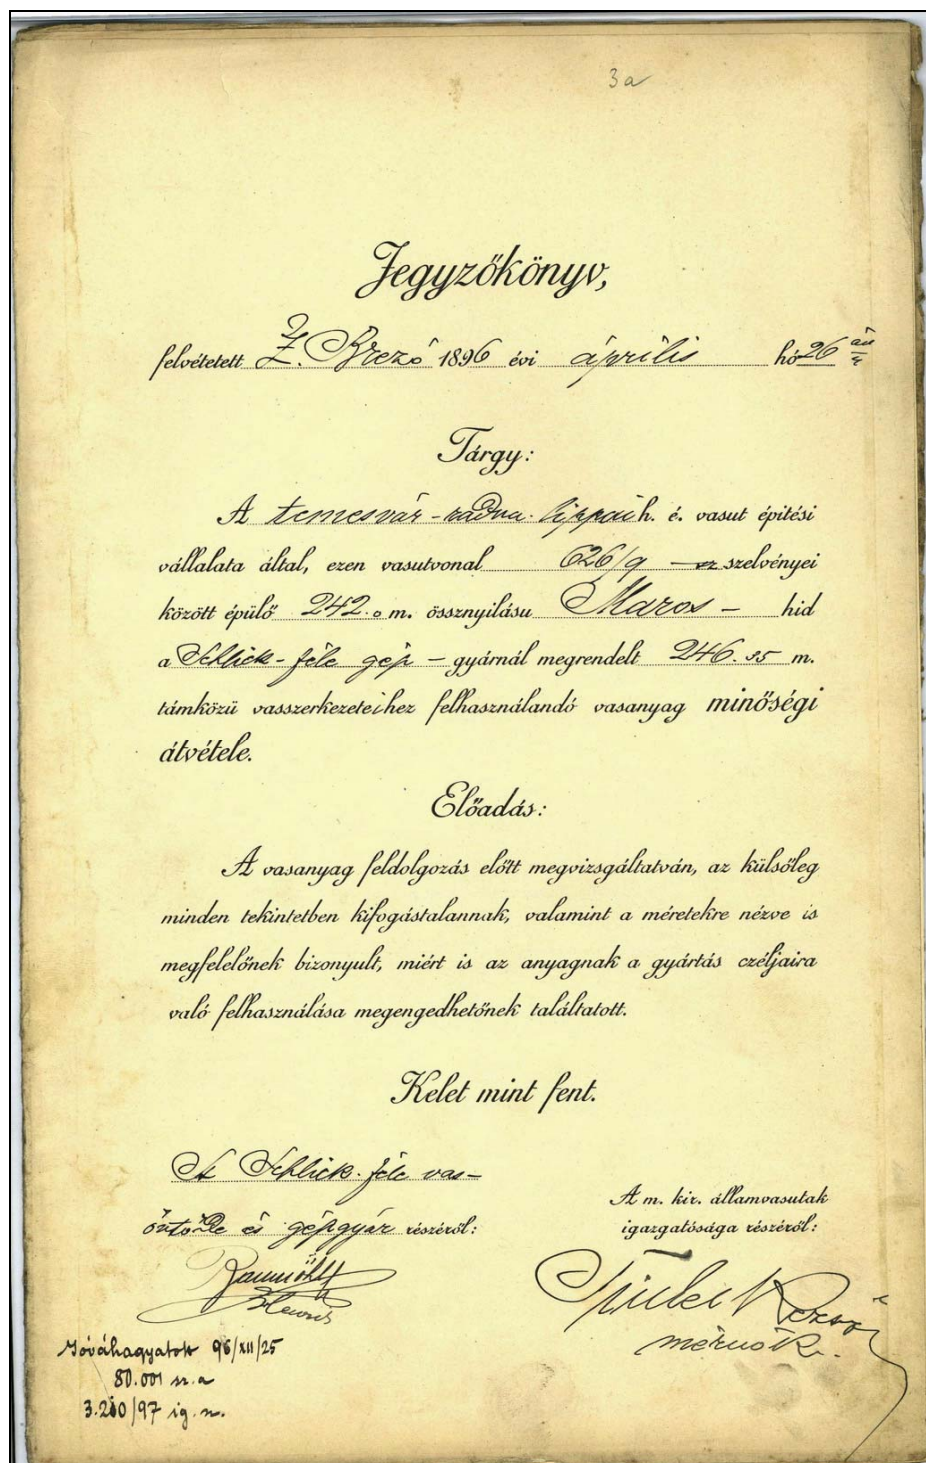 3a
Jegyzőkönyv,
felvétetett Z. Brezó 1896 évi április hó 26 án
Tárgy:
A temesvár-radna-lippai h. é. vasut épitési
vállalata által, ezen vasutvonal 626/9 szelvényei
között épülő 242.0 m. össznyilásu Maros - hid
a Schlick-féle gép - gyárnál megrendelt 246.35 m.
támközü vasszerkezeteihez felhasználandó vasanyag minőségi
átvétele.
Előadás:
A vasanyag feldolgozás előtt megvizsgáltatván, az külsőleg
minden tekintetben kifogástalannak, valamint a méretekre nézve is
megfelelőnek bizonyult, miért is az anyagnak a gyártás czéljaira
való felhasználása megengedhetőnek találtatott.
Kelet mint fent.
A Schlick-féle vas-
öntőde és gépgyár részéről:
A m. kir. államvasutak
igazgatósága részéről:
Rezső
mérnök.
Jóváhagyatott 96/XII/25
80.001 sz. a
3.210/97 ig. n.